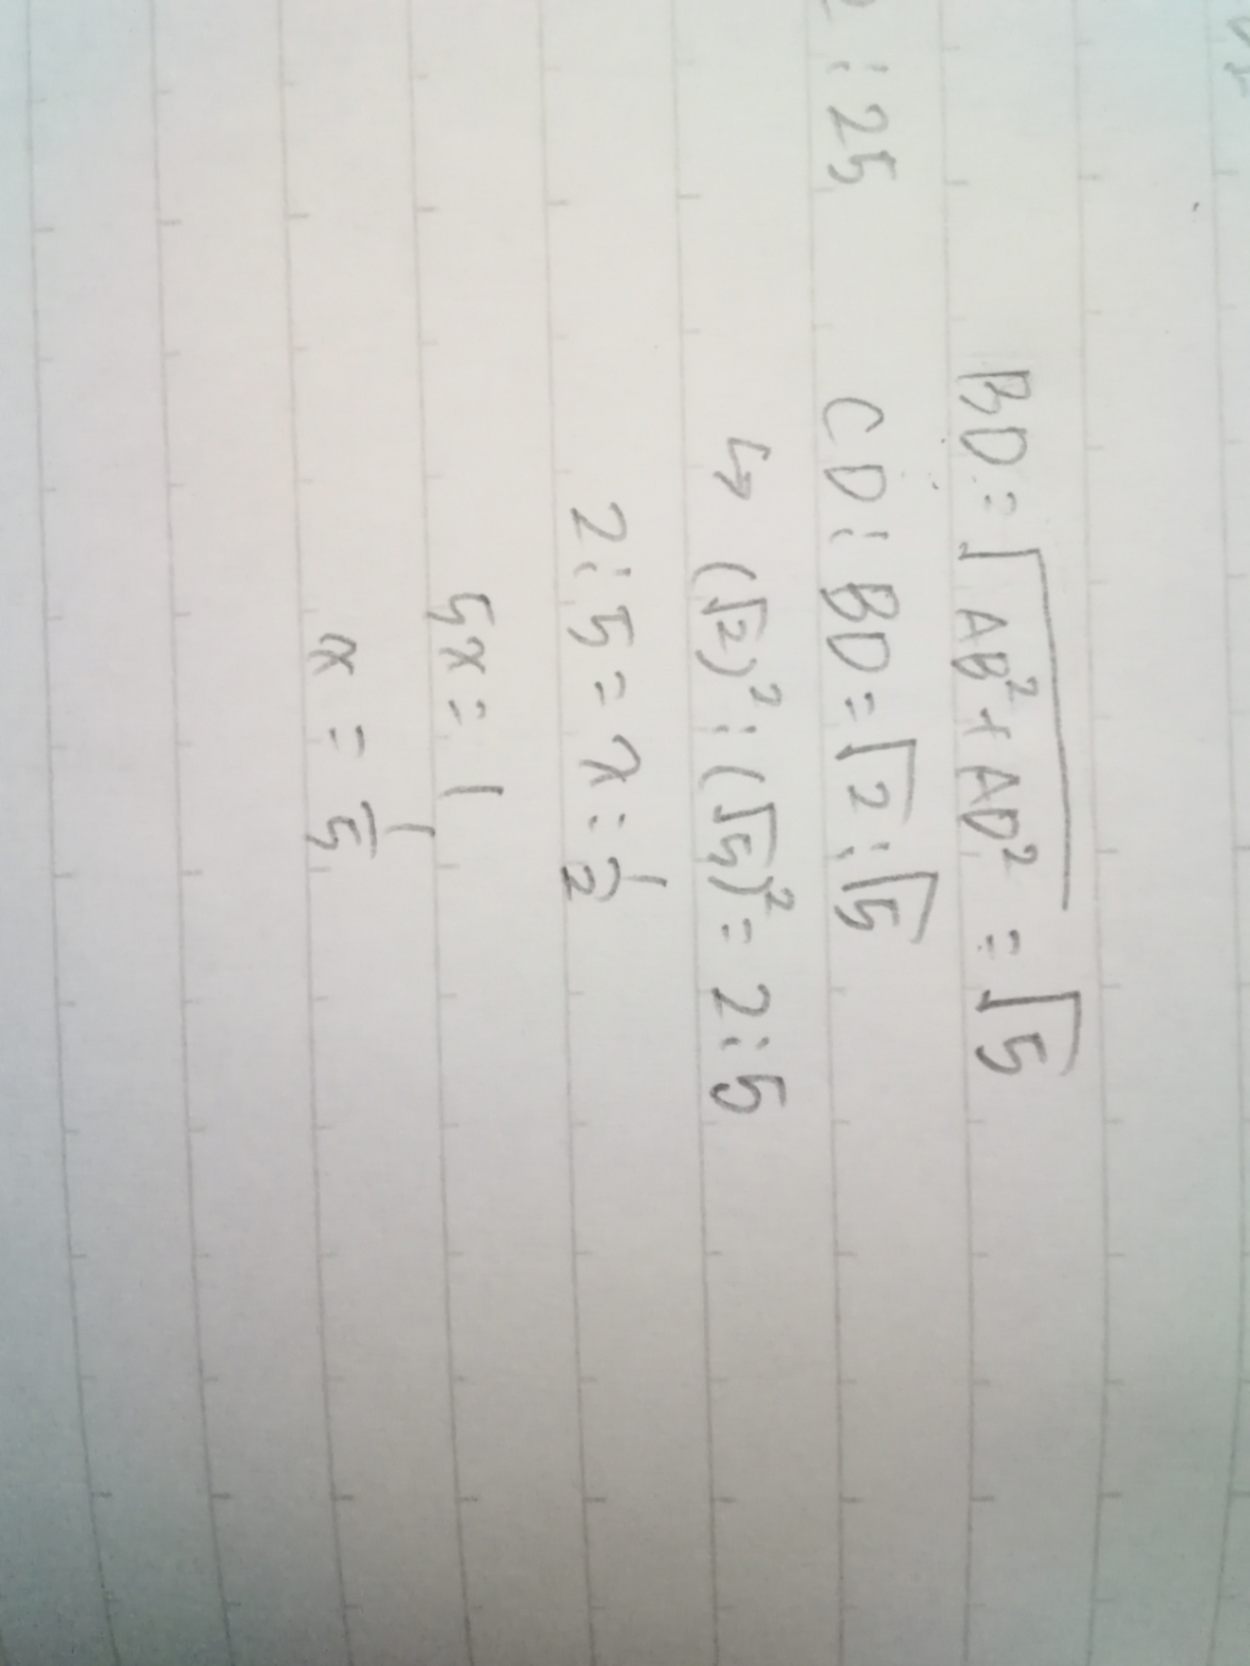 BD = √(AB² + AD²) = √5
: 25
CD : BD = √2 : √5
↳ (√2)² : (√5)² = 2 : 5
2 : 5 = x : 1/2
5x = 1
x = 1/5